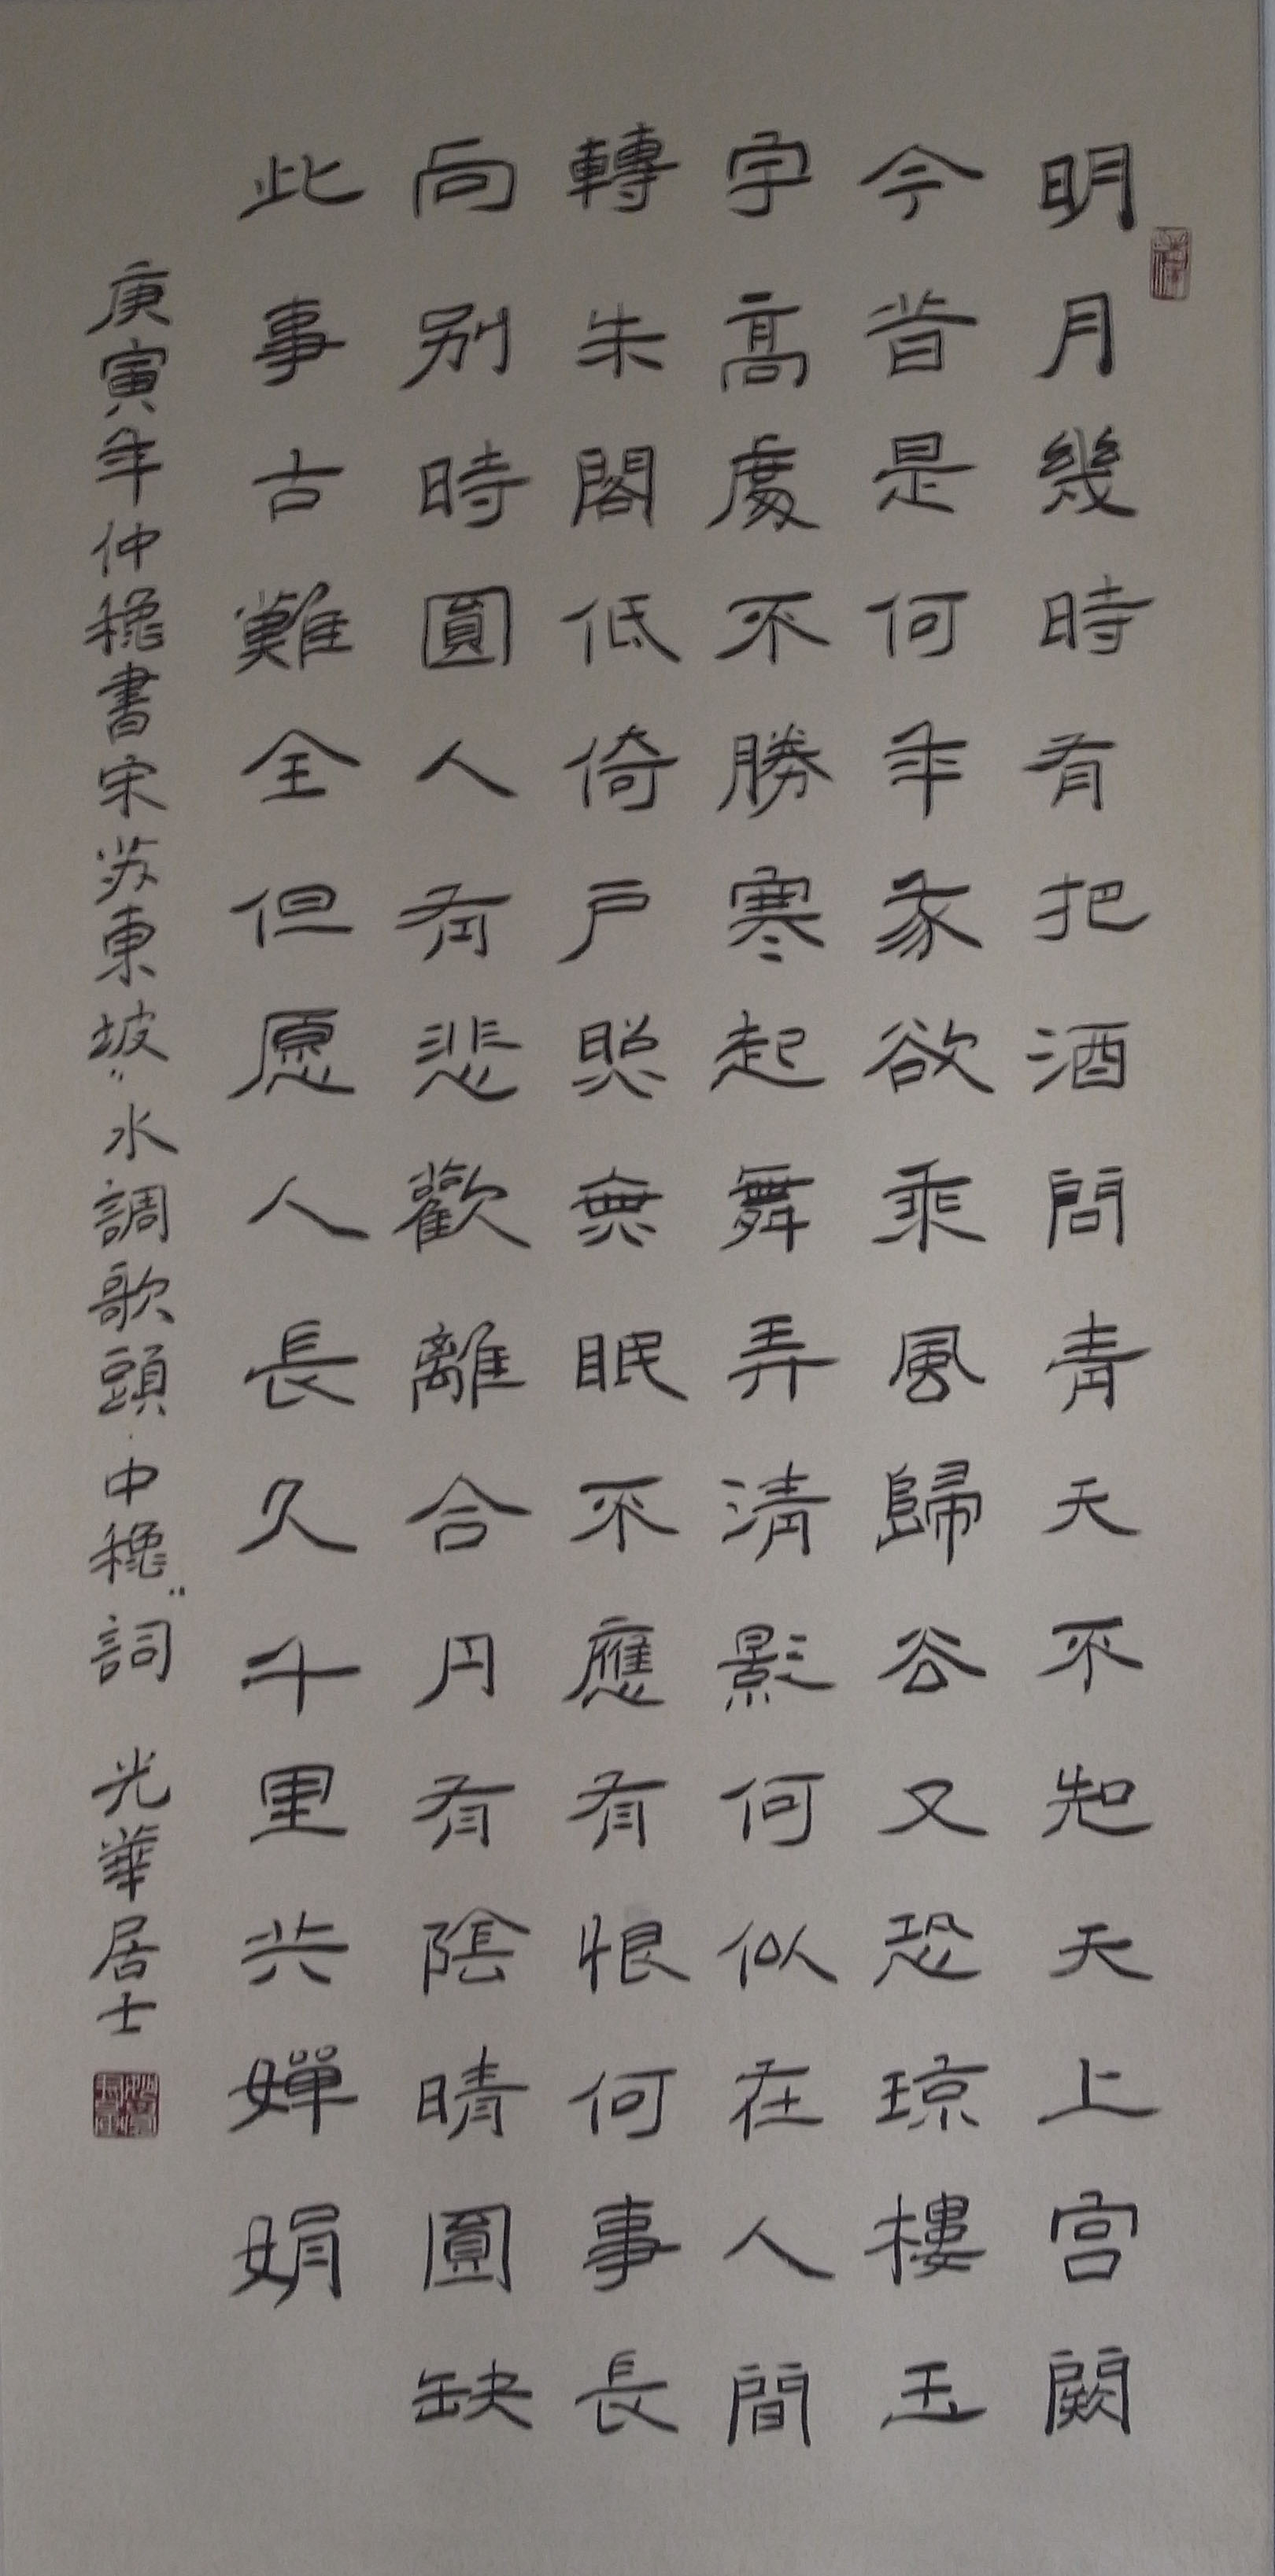 明月幾時有把酒問青天不知天上宫闕
今昔是何年我欲乘風歸去又恐琼樓玉
宇高處不勝寒起舞弄清影何似在人間
轉朱閣低倚户照無眠不應有恨何事長
向别時圓人有悲歡離合月有陰晴圓缺
此事古難全但愿人長久千里共嬋娟
庚寅年仲穐書宋苏東坡"水調歌頭·中穐"詞 光華居士